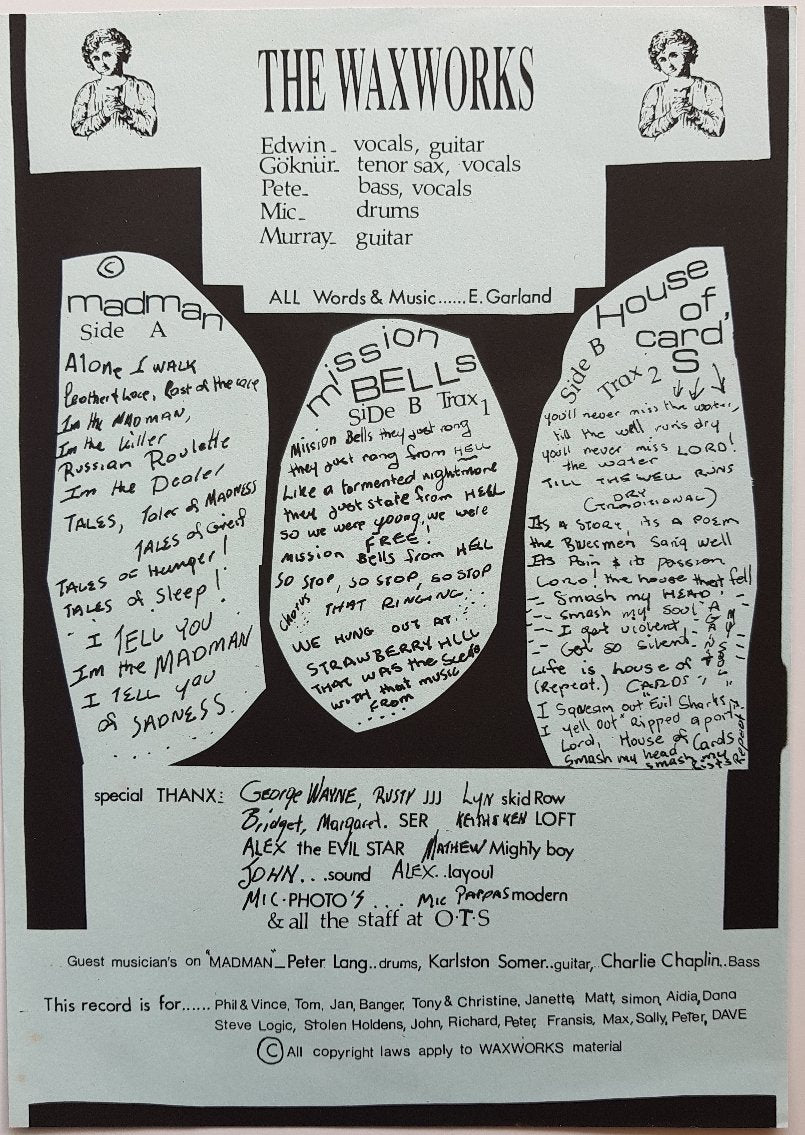 THE WAXWORKS
Edwin_ vocals, guitar
Göknür_ tenor sax, vocals
Pete_ bass, vocals
Mic_ drums
Murray_ guitar
ALL Words & Music......E. Garland
©
madman
Side A
Alone I WALK
Leather & Lace, Last of the race
Im the MADMAN,
Im the killer
RUSSIAN Roulette
Im the Dealer
TALES, Tales of MADNESS
TALES of Grief
TALES OF Hunger!
TALES of Sleep!
I TELL YOU
Im the MADMAN
I TELL YOU
of SADNESS.....
mission
BELLs
SiDe B Trax 1
Mission Bells they just rang
they just rang from HELL
Like a tormented nightmare
they just state from HELL
So we were young, we were
FREE!
MISSION Bells from HELL
SO STOP, SO STOP, SO STOP
Chorus THAT RINGING...
WE HUNG OUT AT
STRAWBERRY HILL
THAT WAS the Scene
WITH that MUSIC
FROM
.....
House
of
card'
S
Side B
Trax 2
youll never miss the water,
till the well runs dry
youll never miss LORD!
the water
TILL THE WELL RUNS
DRY
(TRADITIONAL)
Its A STORY, its A POEM
the Bluesmen Sang well
Its Pain & its Passion
LORD! the house that fell
-- Smash my HEAD!
-- Smash my SOUL
-- I get violent
-- Get so silent
Life is house of
(Repeat.) CARDS
I Squeam out "Evil Sharks
I yell out "Ripped apart
Lord, House of Cards
Smash my head, smash my
Repeat
special THANX: George WAYNE, RUSTY JJJ LYN skid Row
Bridget, Margaret. SER KEITH & KEN LOFT
ALEX the EVIL STAR MATHEW Mighly boy
JOHN...sound ALEX..layoul
MIC·PHOTO'S... Mic PAPPAS modern
& all the staff at O·T·S
Guest musician's on "MADMAN"_Peter Lang..drums, Karlston Somer..guitar, Charlie Chaplin..Bass
This record is for...... Phil & Vince, Tom, Jan, Banger, Tony & Christine, Janette, Matt, simon, Aidia, Dana
Steve Logic, Stolen Holdens, John, Richard, Peter, Fransis, Max, Sally, Peter, DAVE
© All copyright laws apply to WAXWORKS material